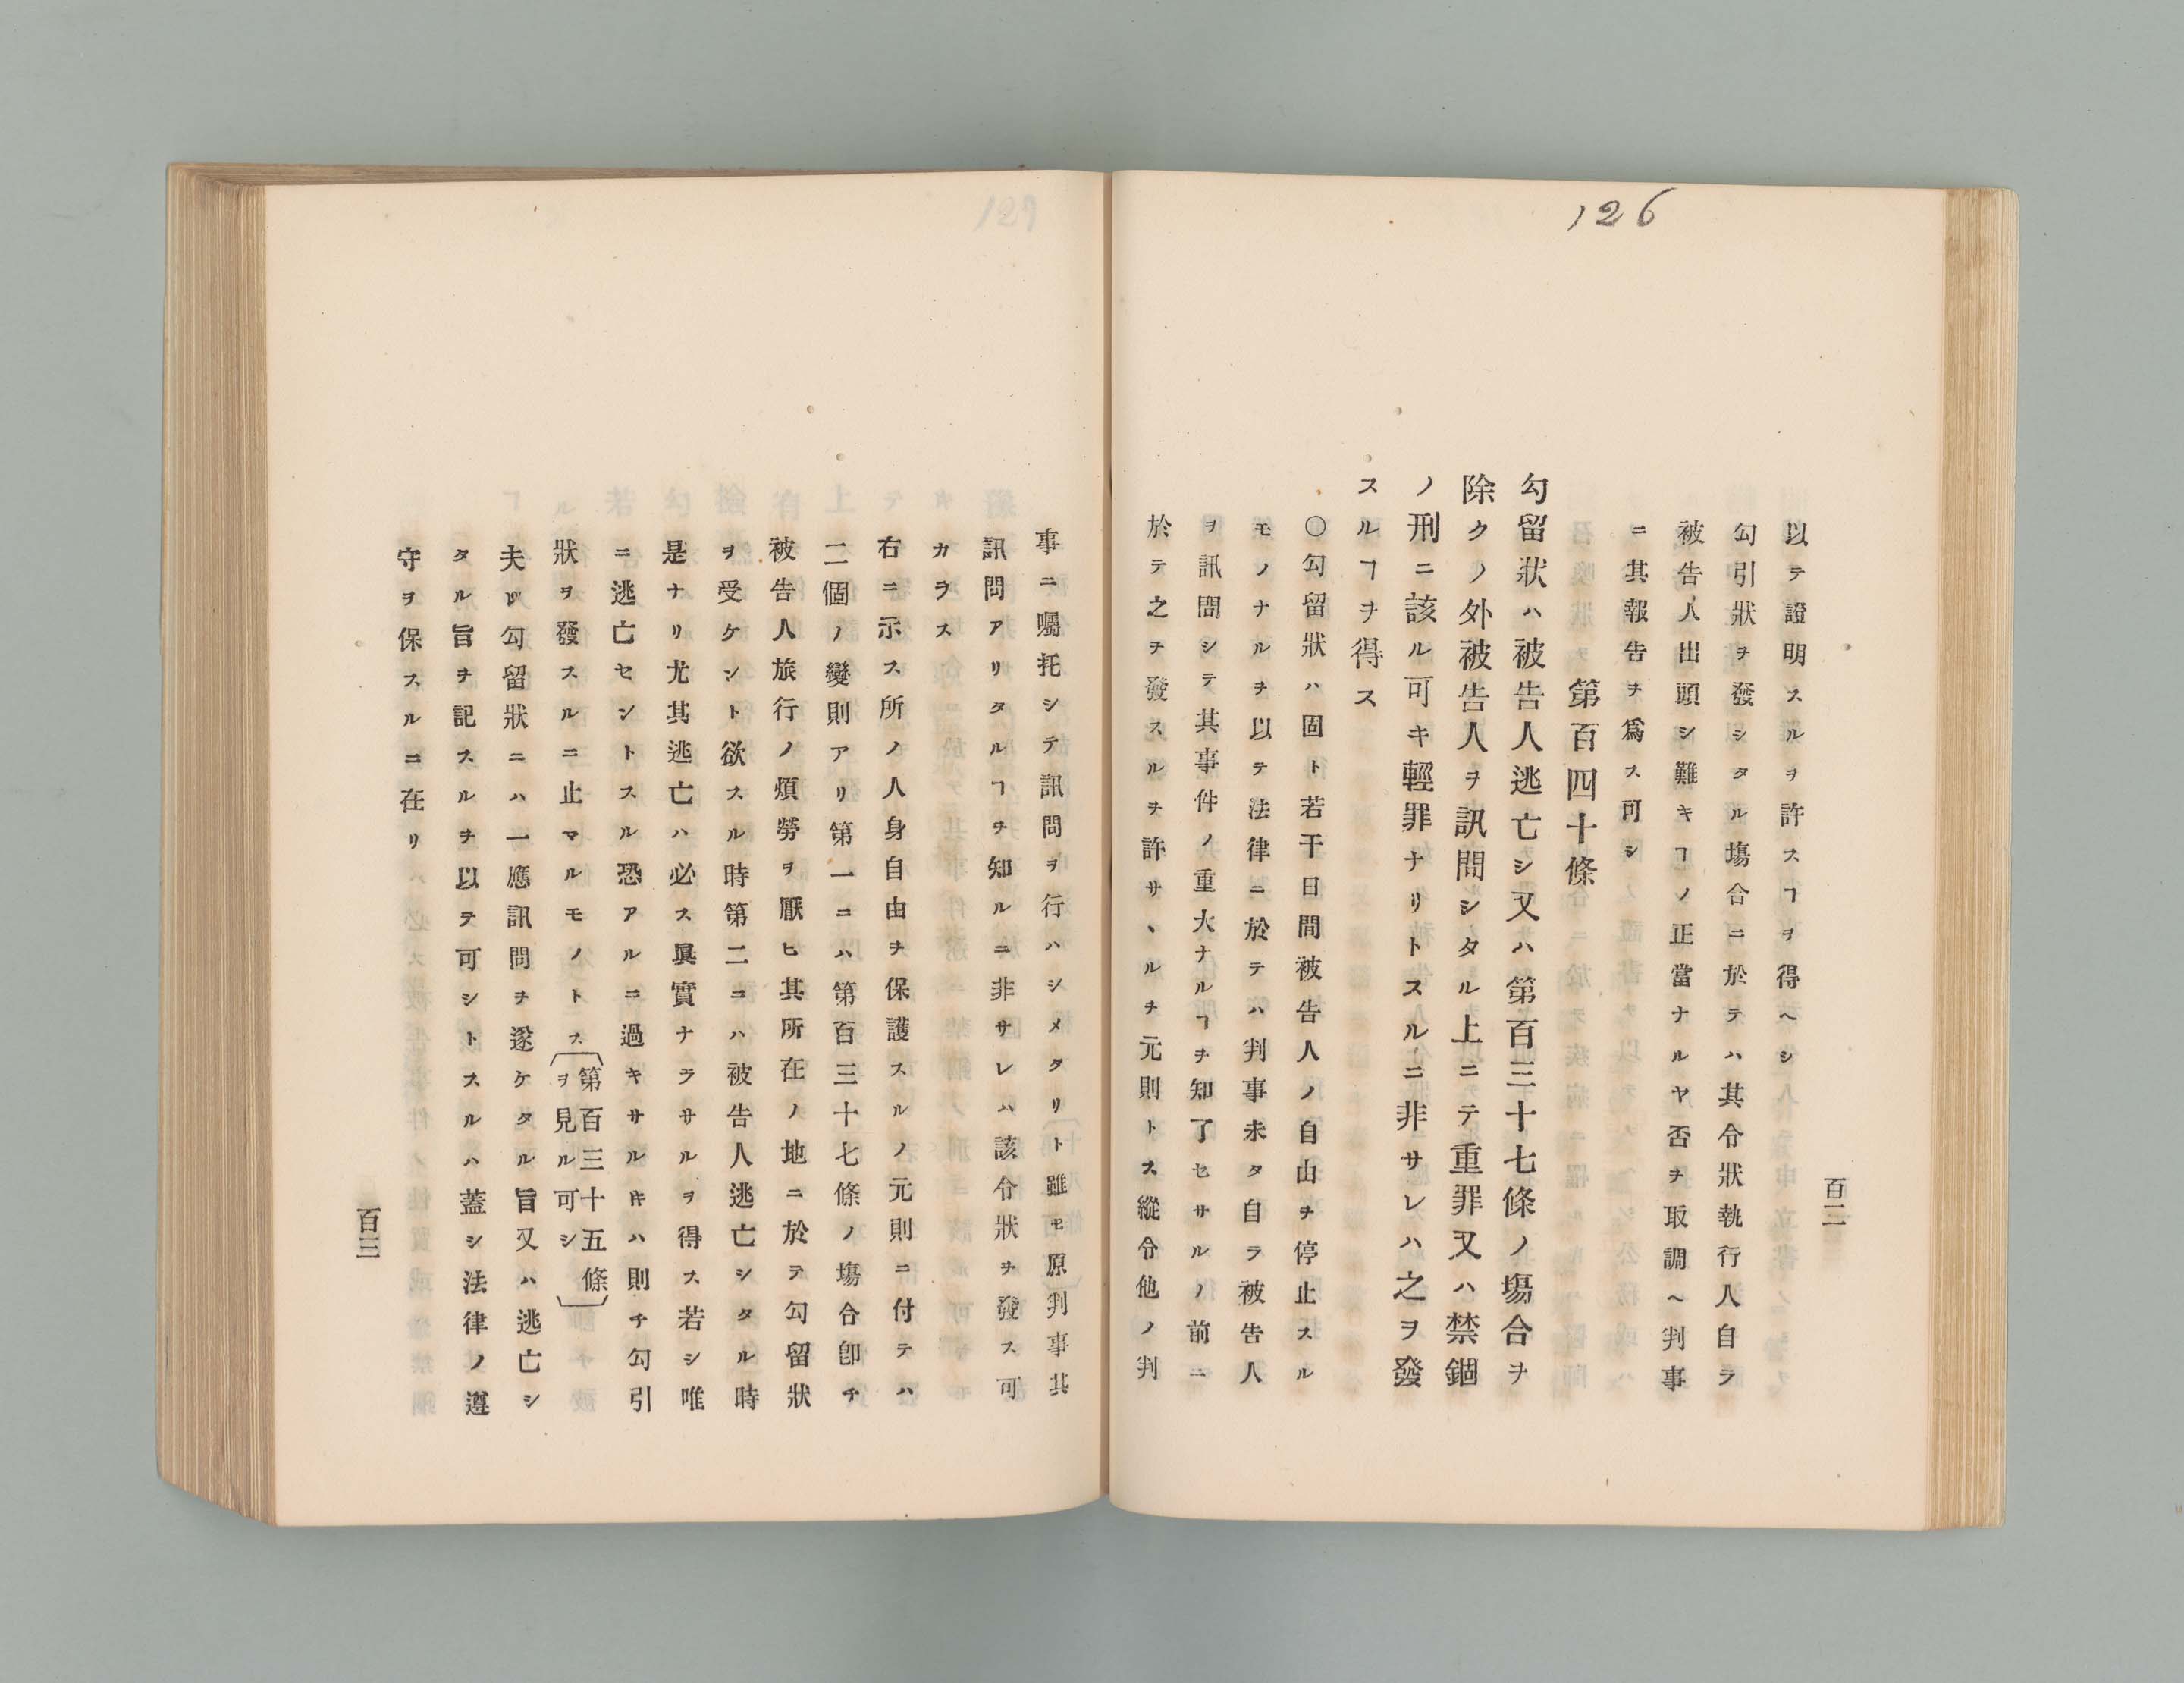 126
以テ證明スルヲ許スヿヲ得ヘシ
勾引狀ヲ發シタル塲合ニ於テハ其令狀執行人自ラ
被告人出頭シ難キヿノ正當ナルヤ否ヲ取調ヘ判事
ニ其報告ヲ爲ス可シ
第百四十條
勾留狀ハ被告人逃亡シ又ハ第百三十七條ノ塲合ヲ
除クノ外被告人ヲ訊問シタル上ニテ重罪又ハ禁錮
ノ刑ニ該ル可キ輕罪ナリトスルニ非サレハ之ヲ發
スルヿヲ得ス
〇勾留狀ハ固ト若干日間被告人ノ自由ヲ停止スル
モノナルヲ以テ法律ニ於テハ判事未タ自ラ被告人
ヲ訊問シテ其事件ノ重大ナルヿヲ知了セサルノ前ニ
於テ之ヲ發スルヲ許サヽルヲ元則トス縱令他ノ判
百二
127
事ニ囑托シテ訊問ヲ行ハシメタリト雖モ原判事其
訊問アリタルヿヲ知ルニ非サレハ該令狀ヲ發ス可
カラス
右ニ示ス所ノ人身自由ヲ保護スルノ元則ニ付テハ
二個ノ變則アリ第一ニハ第百三十七條ノ塲合卽チ
被告人旅行ノ煩勞ヲ厭ヒ其所在ノ地ニ於テ勾留狀
ヲ受ケント欲スル時第二ニハ被告人逃亡シタル時
是ナリ尤其逃亡ハ必ス眞實ナラサルヲ得ス若シ唯
ニ逃亡セントスル恐アルニ過キサル𪜈ハ則チ勾引
狀ヲ發スルニ止マルモノトス〔第百三十五條ヲ見ル可シ〕
夫レ勾留狀ニハ一應訊問ヲ遂ケタル旨又ハ逃亡シ
タル旨ヲ記スルヲ以テ可シトスルハ蓋シ法律ノ遵
守ヲ保スルニ在リ
百三